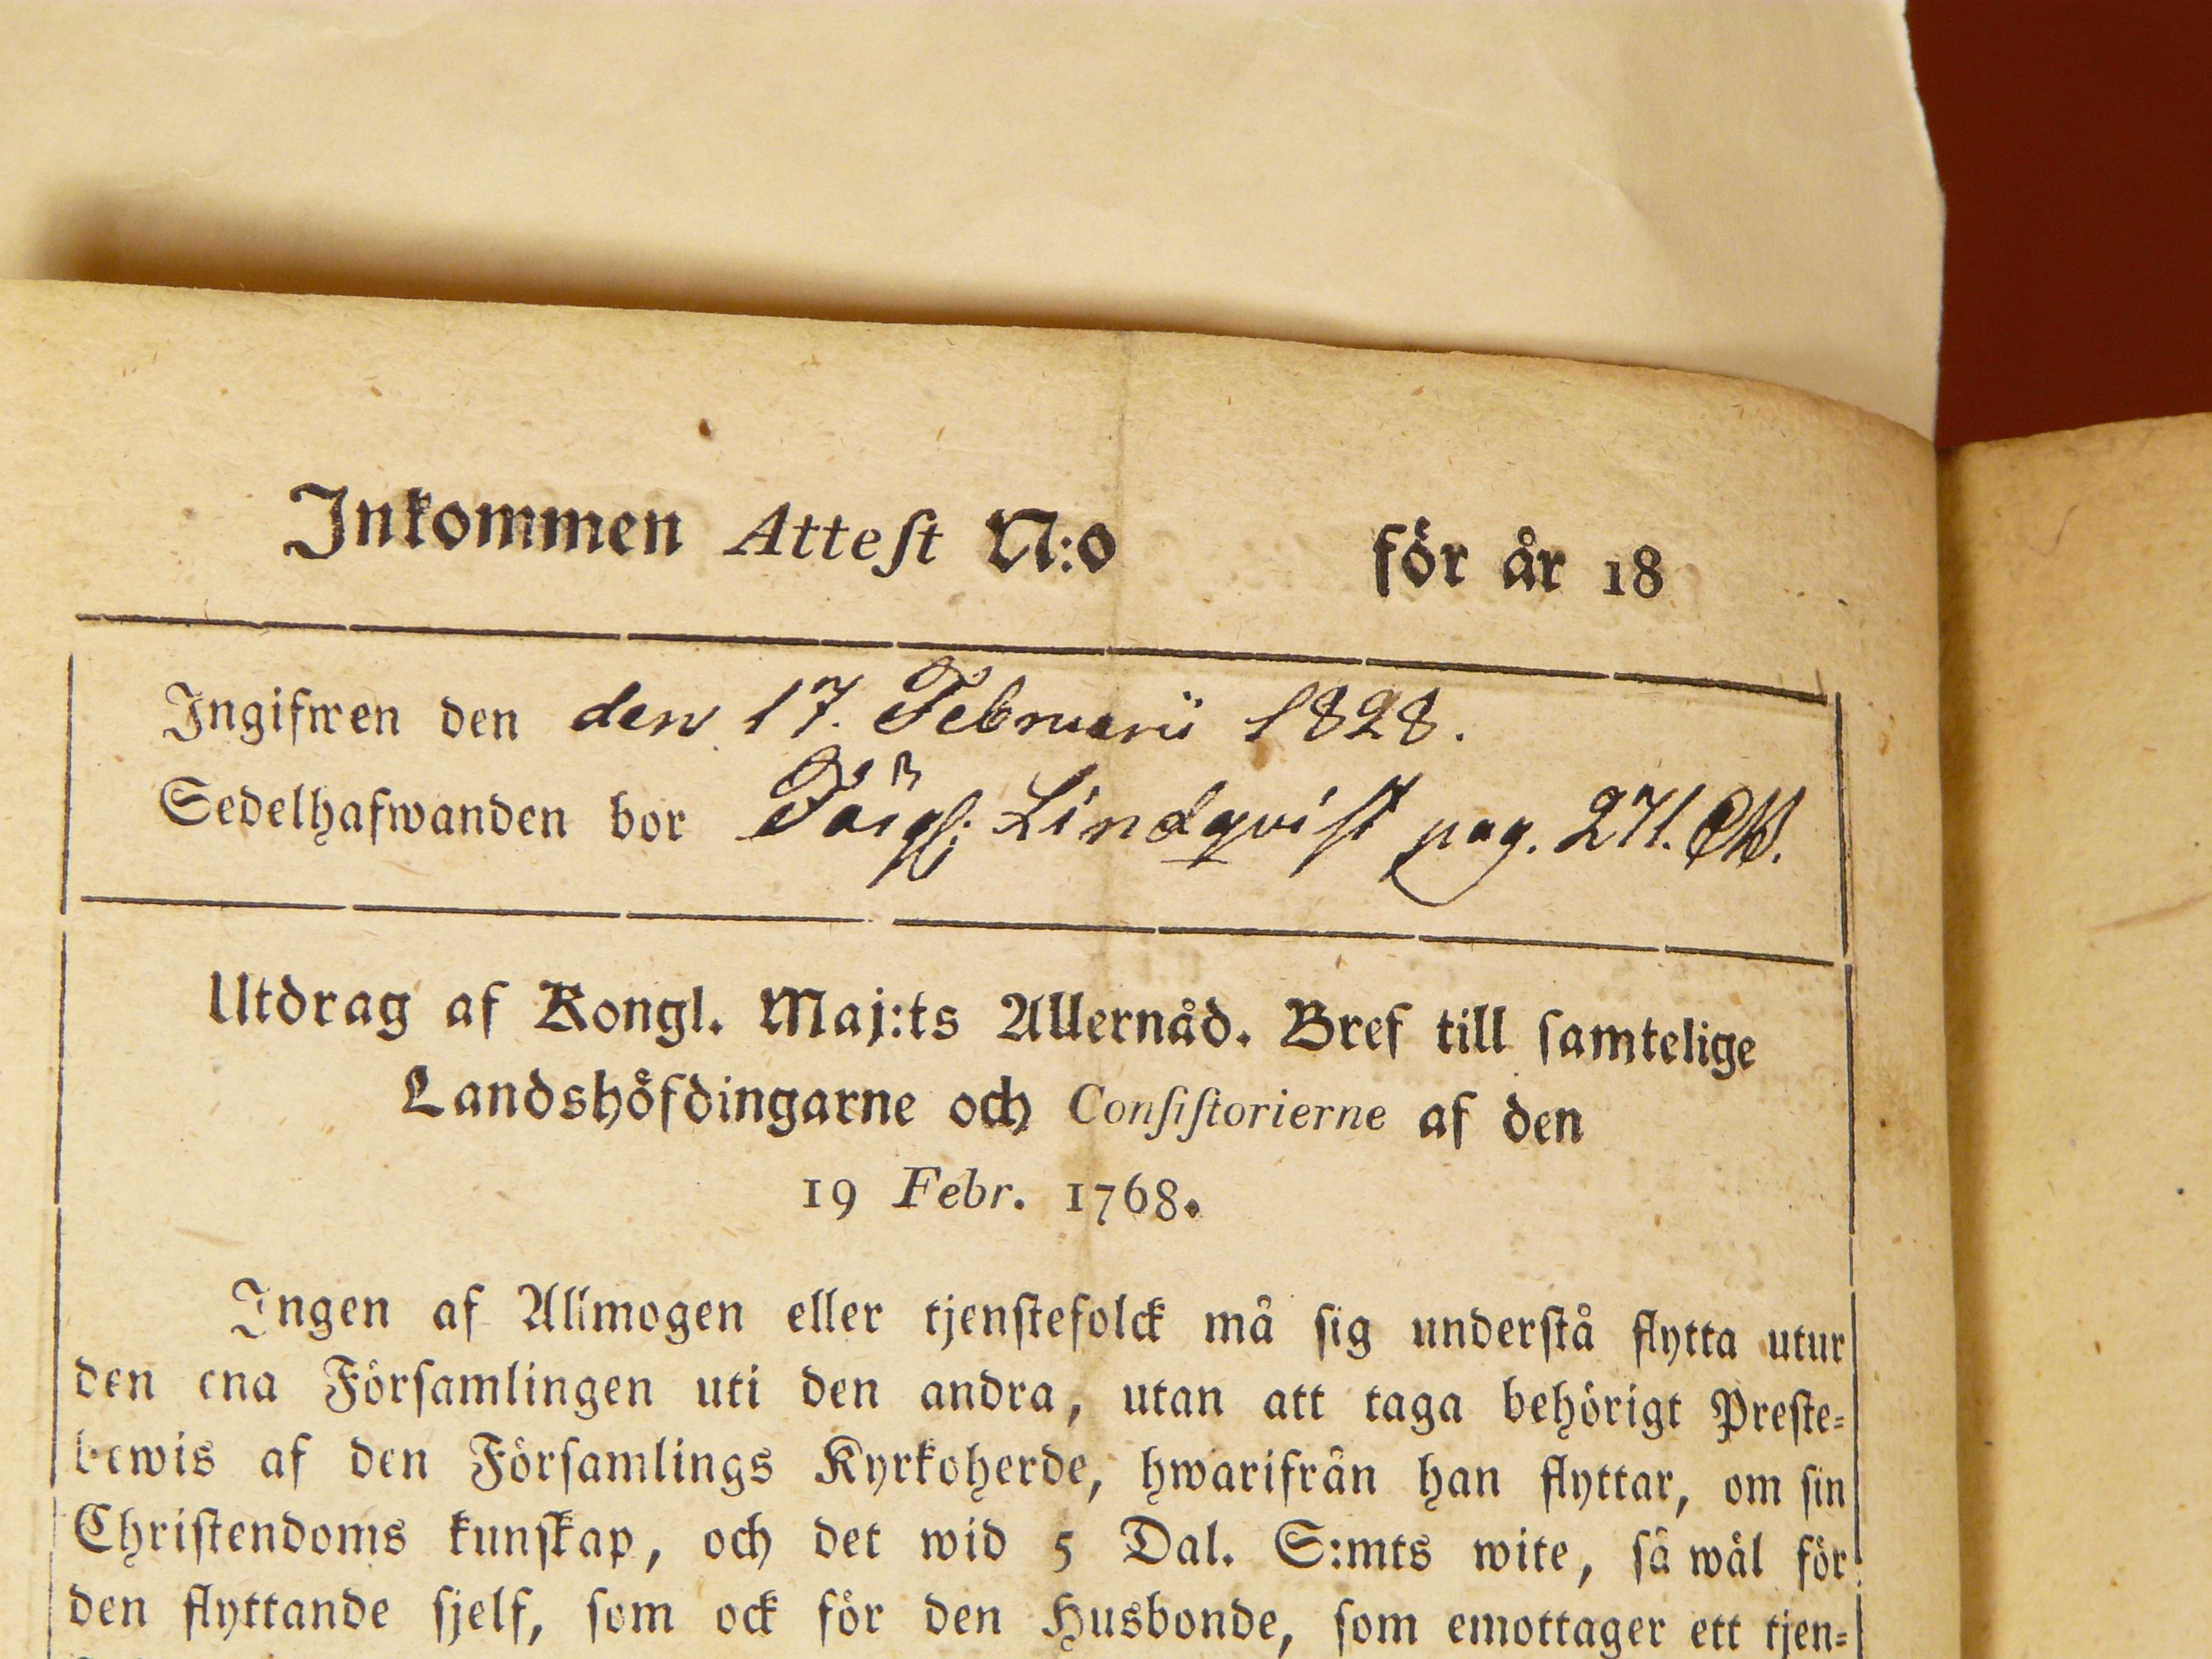 Inkommen Attest N:o för år 18
Ingifwen den den 17. Februarii 1828.
Sedelhafwanden bor Lindqvist pag. 271.
Utdrag af Kongl. Maj:ts Allernåd. Bref till samtelige
Landshöfdingarne och Consistorierne af den
19 Febr. 1768.
Ingen af Allmogen eller tjenstefolck må sig understå flytta utur
den ena Församlingen uti den andra, utan att taga behörigt Preste=
bewis af den Församlings Kyrkoherde, hwarifrån han flyttar, om sin
Christendoms kunskap, och det wid 5 Dal. S:mts wite, så wäl för
den flyttande sjelf, som ock för den Husbonde, som emottager ett tjen=